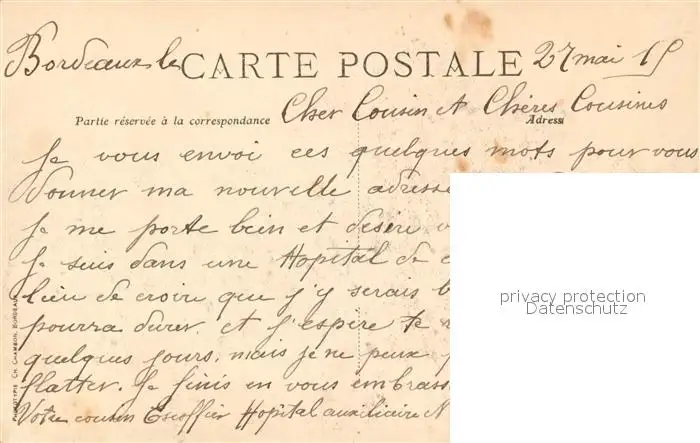 Bordeaux le CARTE POSTALE 27 mai 15
Partie réservée à la correspondance Cher Cousin et Chères Cousines
Adresse
Je vous envoi ces quelques mots pour vous
donner ma nouvelle adresse
Je me porte bein et desire
Je suis dans une Hopital de
lieu de croire que j'y serais
pourra durer. et j'espère te
quelques jours. mais je ne peux
flatter. Je finis en vous embrass
Votre cousin Escoffier Hopital auxiliaire N
PHOTOTYPIE CH. CHAMBON, BORDEAUX
privacy protection
Datenschutz